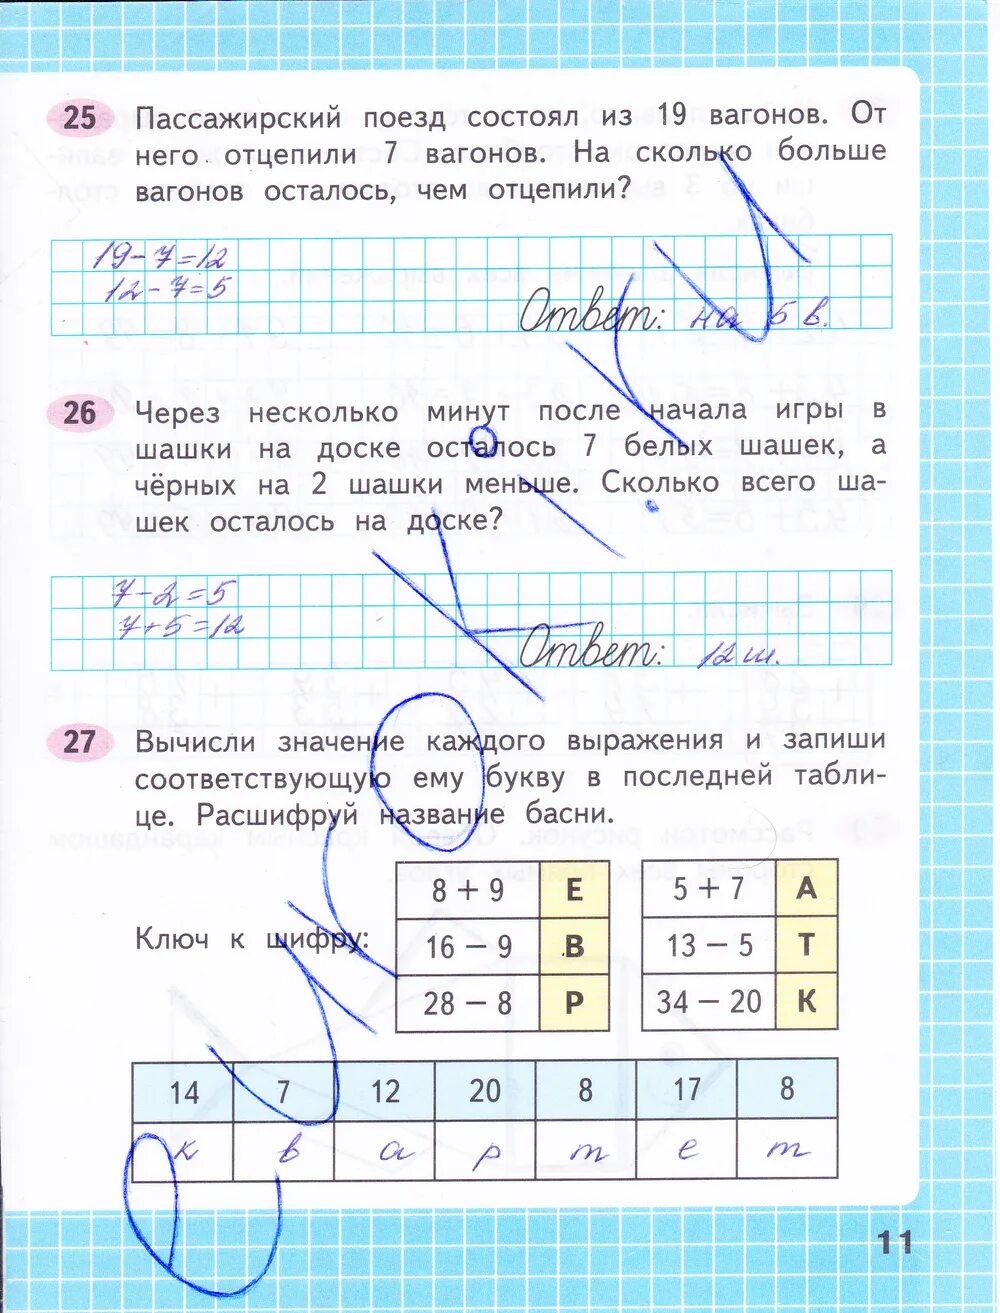 25 Пассажирский поезд состоял из 19 вагонов. От
него отцепили 7 вагонов. На сколько больше
вагонов осталось, чем отцепили?
19-7=12
12-7=5
Ответ: на 5 в.
26 Через несколько минут после начала игры в
шашки на доске осталось 7 белых шашек, а
чёрных на 2 шашки меньше. Сколько всего ша-
шек осталось на доске?
7-2=5
7+5=12
Ответ: 12 ш.
27 Вычисли значение каждого выражения и запиши
соответствующую ему букву в последней табли-
це. Расшифруй название басни.
Ключ к шифру:
8 + 9 Е 5 + 7 А
16 − 9 В 13 − 5 Т
28 − 8 Р 34 − 20 К
14 7 12 20 8 17 8
к в а р т е т
11